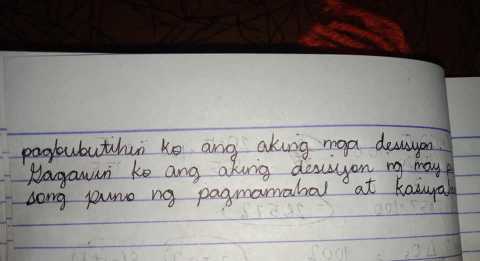 pagbubutihin ko ang aking mga desisyon.
Gagawin ko ang aking desisyon ng may
song puno ng pagmamahal at